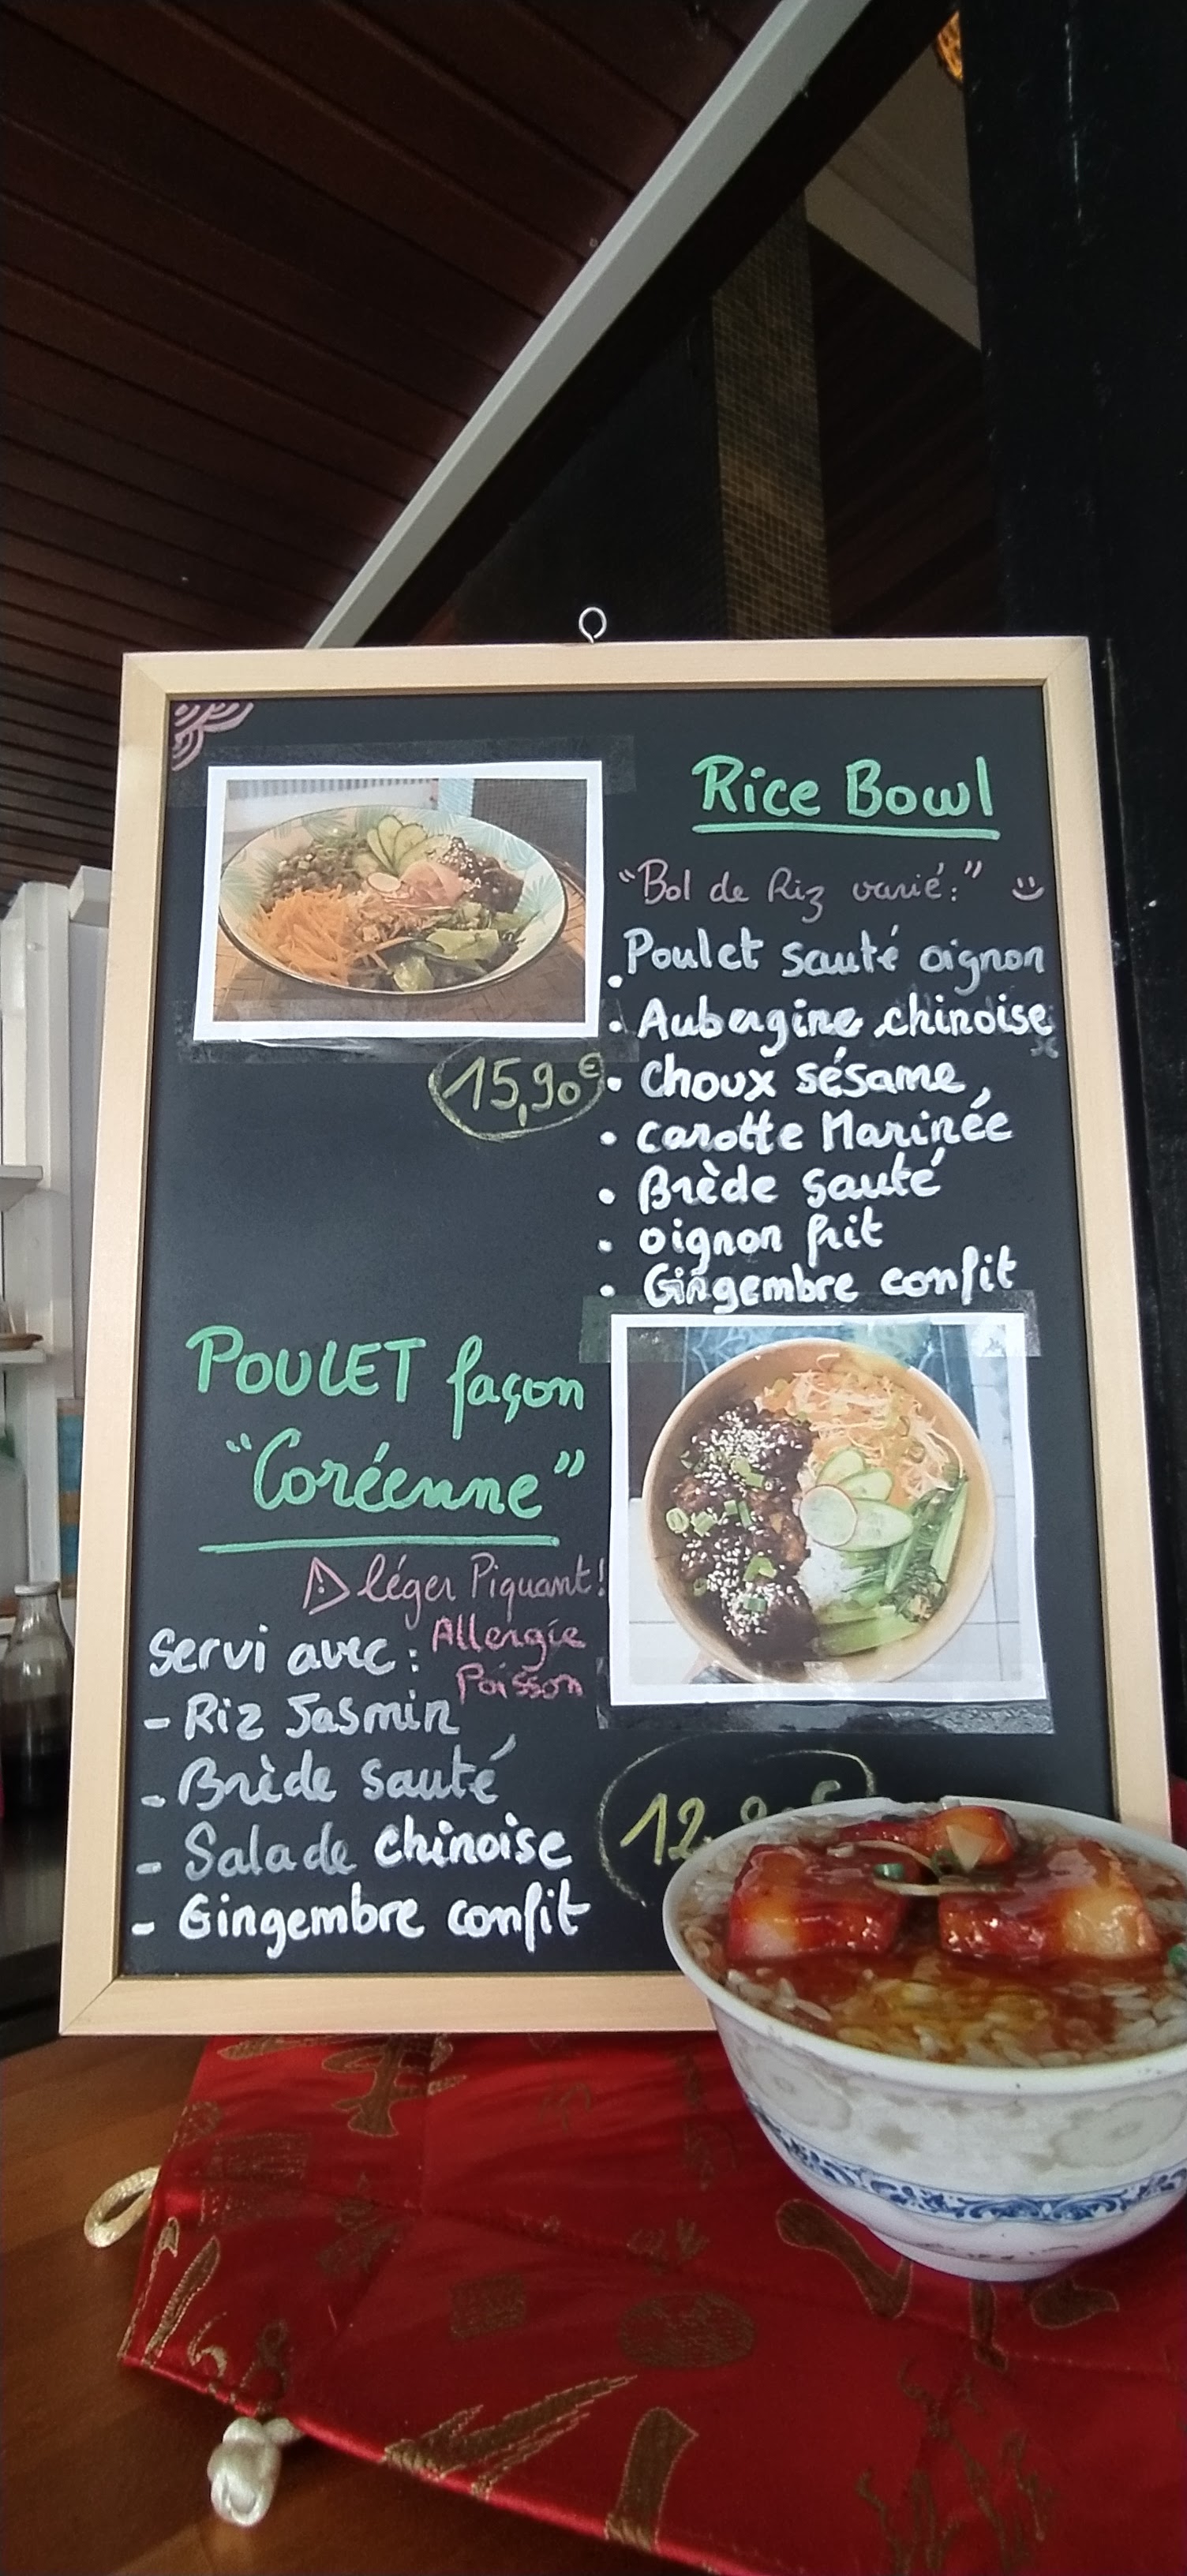 Rice Bowl
"Bol de Riz varié:"
. Poulet sauté oignon
. Aubergine chinoise
. Choux sésame
. carotte Marinée
. Brède sauté
. oignon frit
. Gingembre confit
15,90€
POULET façon
"Coréenne"
léger Piquant!
Allergie
Poisson
Servi avec:
- Riz Jasmin
- Brède sauté
- Salade chinoise
- Gingembre confit